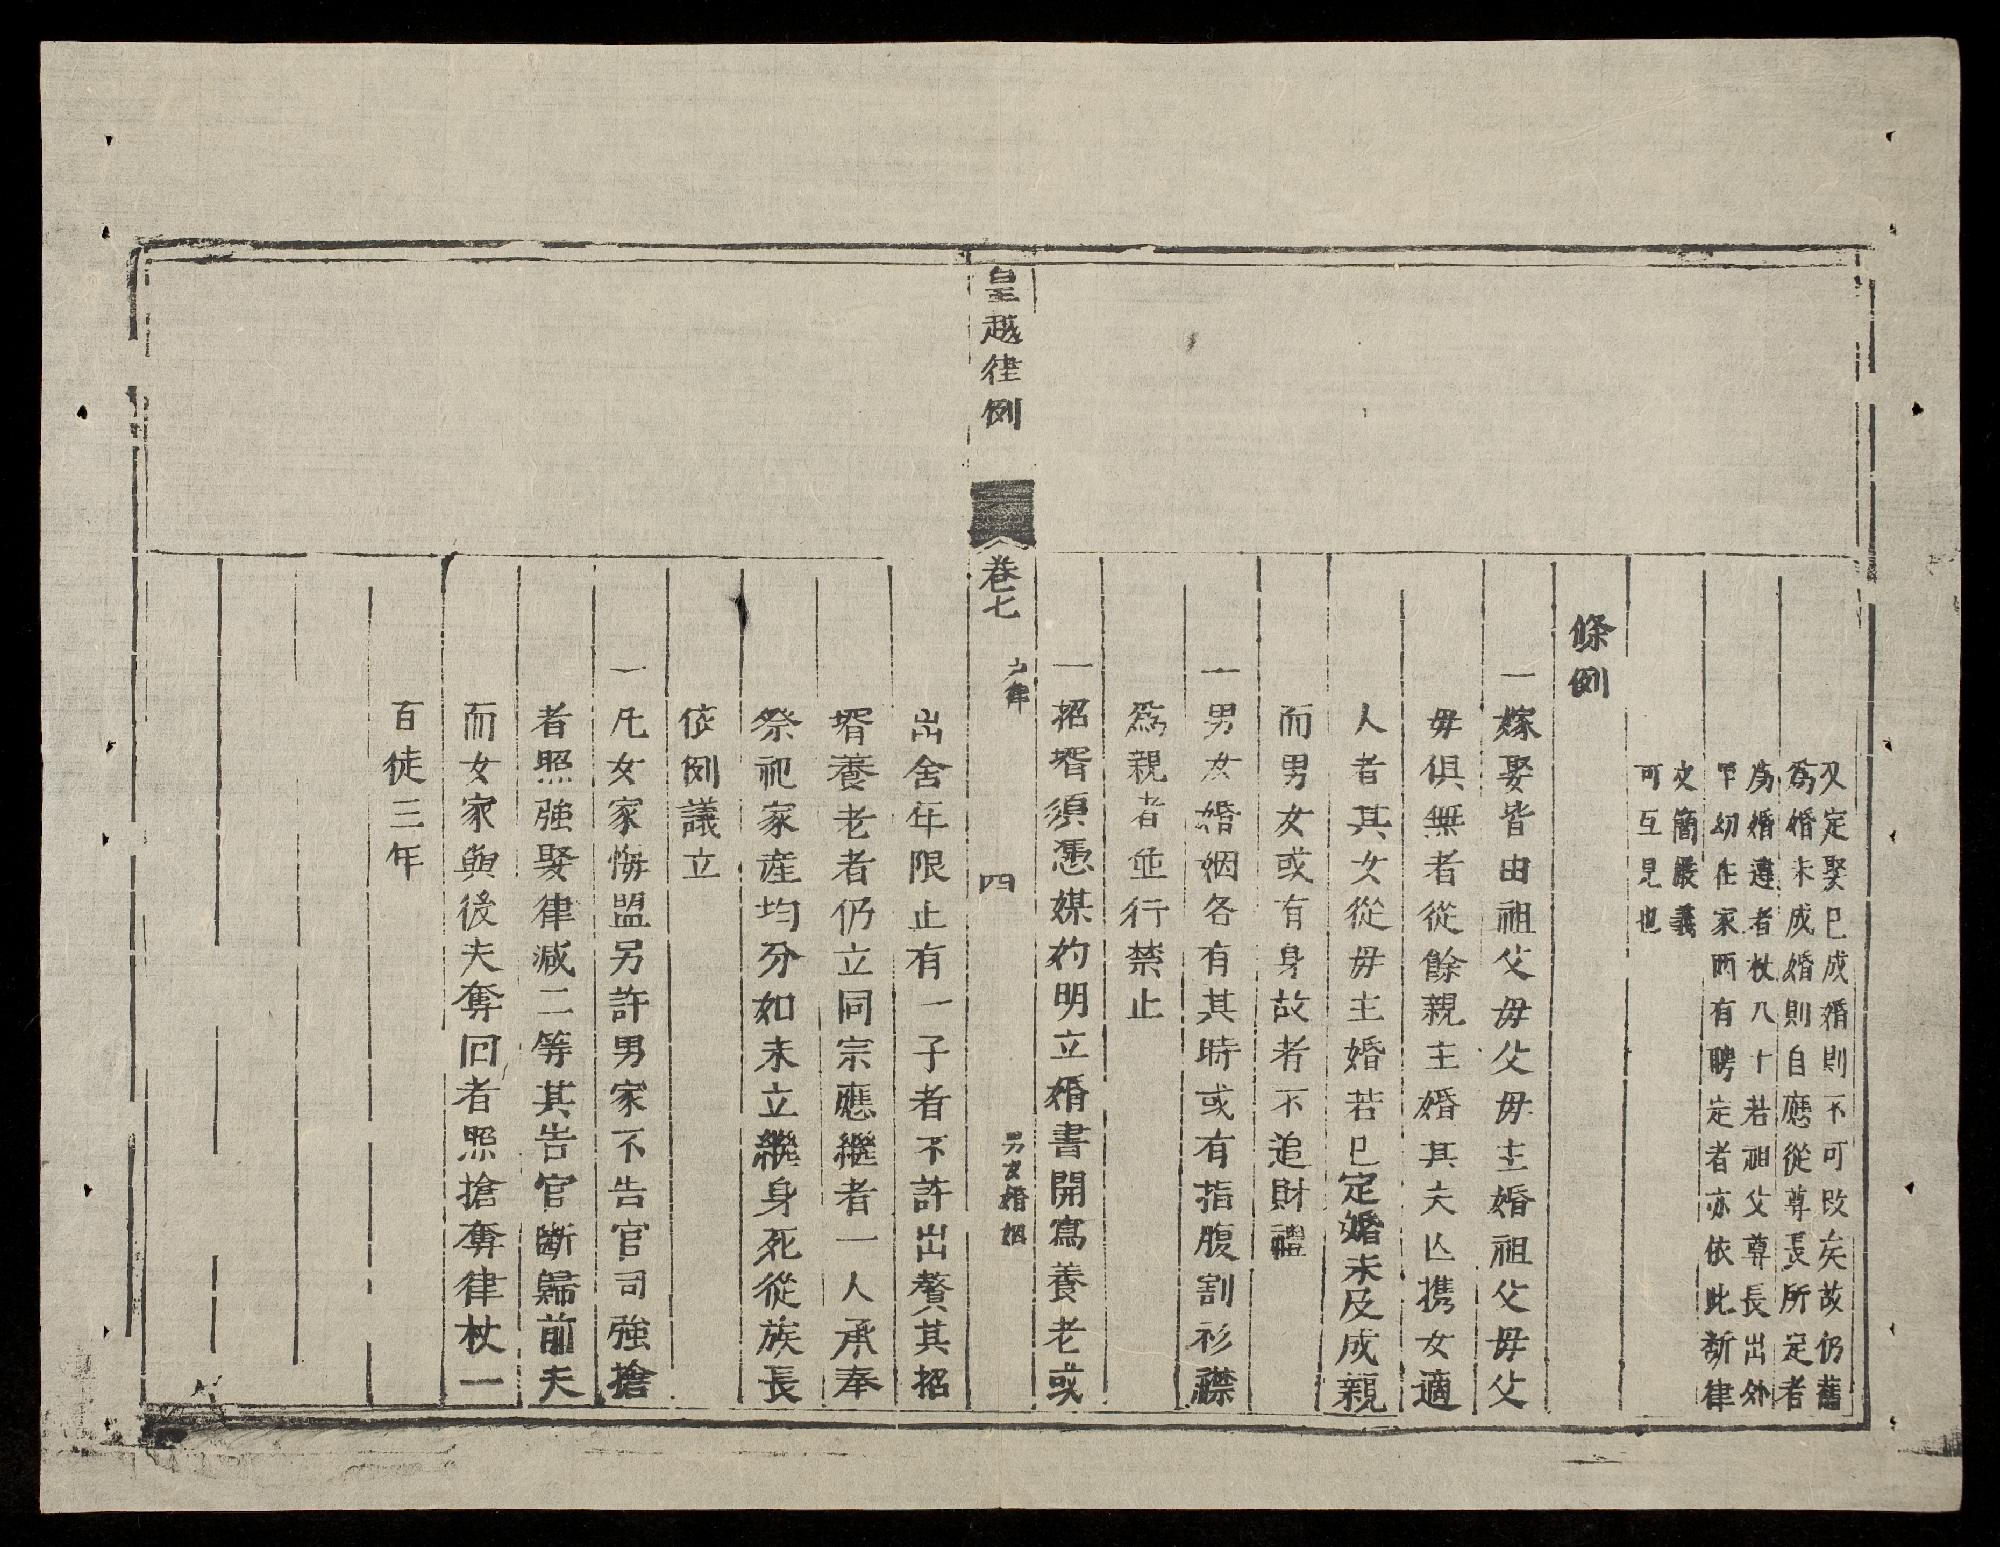 又定娶已成婚則不可改矣故仍舊
爲婚未成婚則自應從尊長所定者
爲婚違者杖八十若祖父尊長出外
卑幼在家而有聘定者亦依此斷律
文簡嚴義
可互見也
條例
一嫁娶皆由祖父毋父毋主婚祖父毋父
毋俱無者從餘親主婚其夫亾携女適
人者其女從毋主婚若已定婚未及成親
而男女或有身故者不追財禮
一男女婚姻各有其時或有指腹割衫襟
爲親者並行禁止
一招壻須憑媒妁明立婚書開寫養老或
皇越律例
卷七
戶律
四
男女婚姻
出舍年限止有一子者不許出贅其招
壻養老者仍立同宗應繼者一人承奉
祭祀家産均分如未立繼身死從族長
依例議立
一凡女家悔盟另許男家不告官司強搶
者照強娶律减二等其告官斷歸前夫
而女家與後夫奪回者照搶奪律杖一
百徒三年